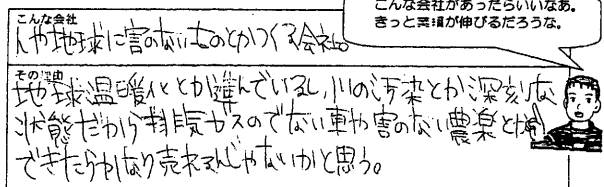 こんな会社があったらいいなあ。
きっと業績が伸びるだろうな。
こんな会社
人や地球に害のないものとかつくる会社。
その理由
地球温暖化とかが進んでいるし、川の汚染とか深刻な
状態だから排気ガスのでない車や害のない農薬とか
できたらかなり売れるんじゃないかと思う。